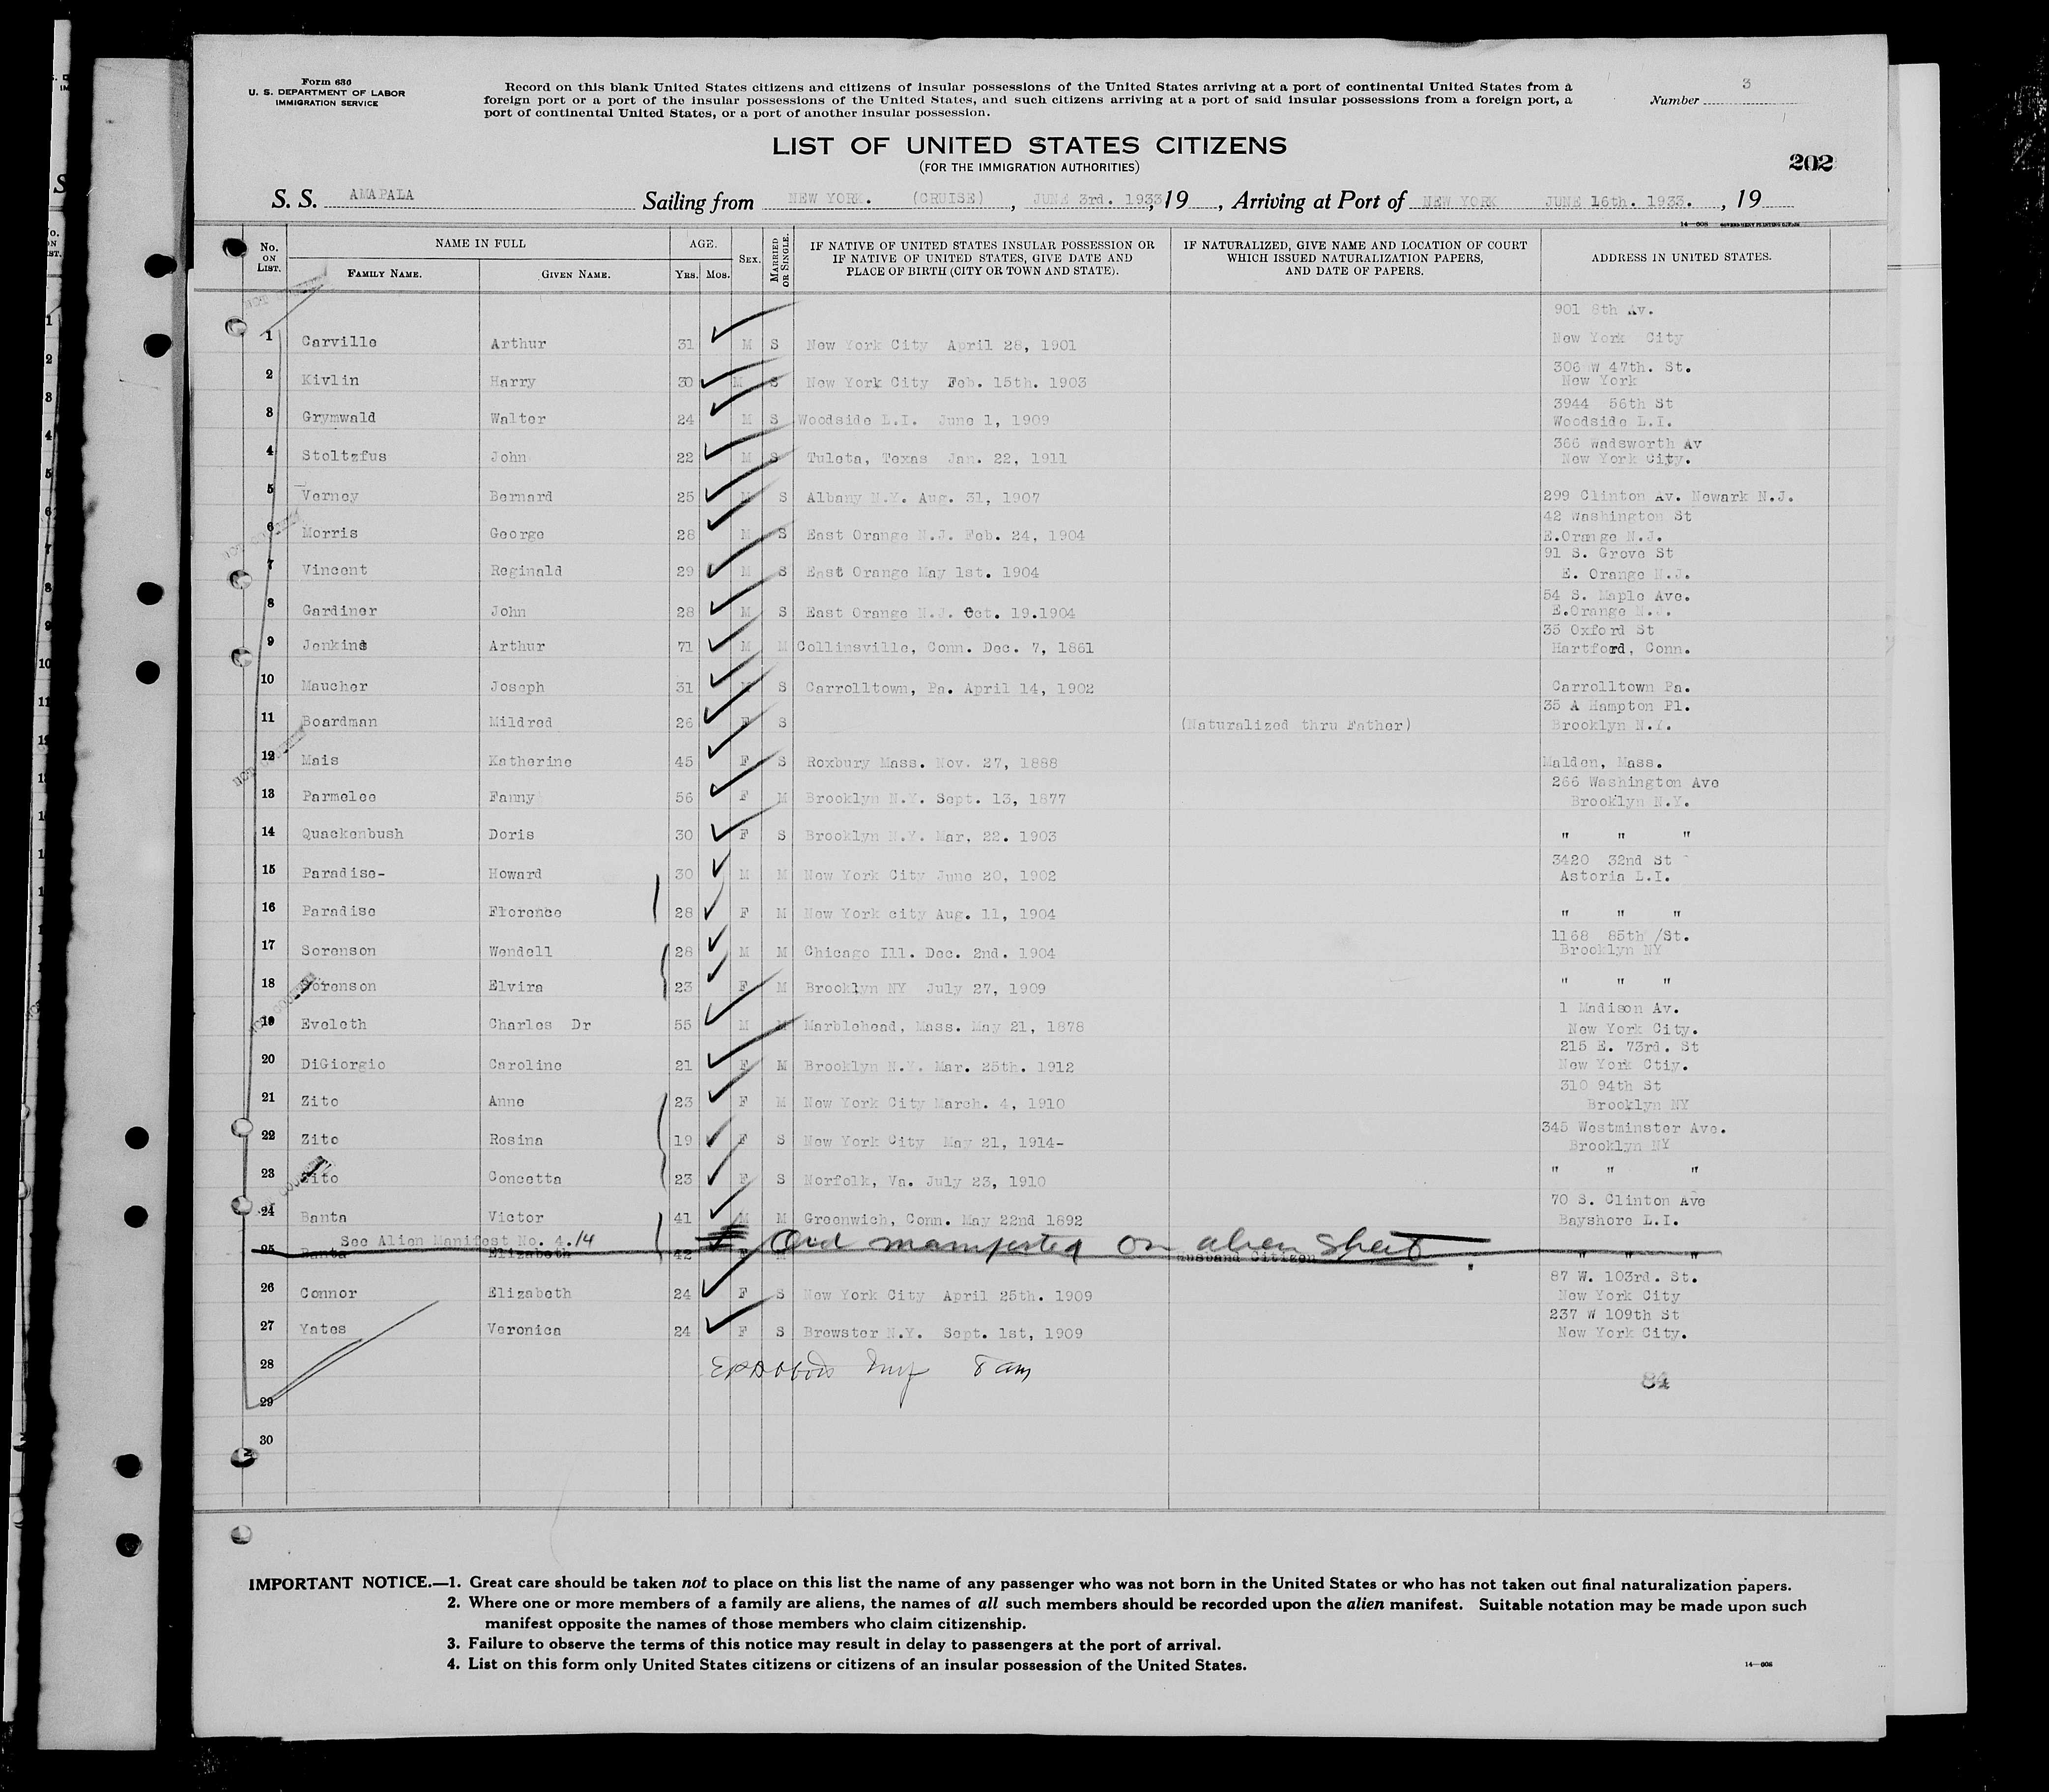 Form 630
U. S. DEPARTMENT OF LABOR
IMMIGRATION SERVICE
Record on this blank United States citizens and citizens of insular possessions of the United States arriving at a port of continental United States from a
foreign port or a port of the insular possessions of the United States, and such citizens arriving at a port of said insular possessions from a foreign port, a
port of continental United States, or a port of another insular possession.
Number 3
LIST OF UNITED STATES CITIZENS
(FOR THE IMMIGRATION AUTHORITIES)
202
S. S. AMAPALA Sailing from NEW YORK. (CRUISE) , JUNE 3rd. 1933, 19 , Arriving at Port of NEW YORK JUNE 16th. 1933. , 19
No. ON LIST. NAME IN FULL AGE. SEX. MARRIED OR SINGLE. IF NATIVE OF UNITED STATES INSULAR POSSESSION OR IF NATIVE OF UNITED STATES, GIVE DATE AND PLACE OF BIRTH (CITY OR TOWN AND STATE). IF NATURALIZED, GIVE NAME AND LOCATION OF COURT WHICH ISSUED NATURALIZATION PAPERS, AND DATE OF PAPERS. ADDRESS IN UNITED STATES.
FAMILY NAME. GIVEN NAME. YRS. MOS.
901 8th Av.
1 Carville Arthur 31 M S New York City April 28, 1901 New York City
306 W 47th. St.
2 Kivlin Harry 30 M S New York City Feb. 15th. 1903 New York
3944 56th St
3 Grymwald Walter 24 M S Woodside L.I. June 1, 1909 Woodside L.I.
366 Wadsworth Av
4 Stoltzfus John 22 M S Tuleta, Texas Jan. 22, 1911 New York City.
5 Verney Bernard 25 M S Albany N.Y. Aug. 31, 1907 299 Clinton Av. Newark N.J.
42 Washington St
6 Morris George 28 M S East Orange N.J. Feb. 24, 1904 E.Orange N.J.
91 S. Grove St
7 Vincent Reginald 29 M S East Orange May 1st. 1904 E. Orange N.J.
54 S. Maple Ave.
8 Gardiner John 28 M S East Orange N.J. Oct. 19.1904 E.Orange N.J.
35 Oxford St
9 Jenkins Arthur 71 M M Collinsville, Conn. Dec. 7, 1861 Hartford, Conn.
10 Maucher Joseph 31 M S Carrolltown, Pa. April 14, 1902 Carrolltown Pa.
35 A Hampton Pl.
11 Boardman Mildred 26 F S (Naturalized thru Father) Brooklyn N.Y.
12 Mais Katherine 45 F S Roxbury Mass. Nov. 27, 1888 Malden, Mass.
266 Washington Ave
13 Parmelee Fanny 56 F M Brooklyn N.Y. Sept. 13, 1877 Brooklyn N.Y.
14 Quackenbush Doris 30 F S Brooklyn N.Y. Mar. 22. 1903 " " "
3420 32nd St
15 Paradise- Howard 30 M M New York City June 20, 1902 Astoria L.I.
16 Paradise Florence 28 F M New York city Aug. 11, 1904 " " "
1168 85th /St.
17 Sorenson Wendell 28 M M Chicago Ill. Dec. 2nd. 1904 Brooklyn NY
18 Sorenson Elvira 23 F M Brooklyn NY July 27, 1909 " " "
1 Madison Av.
19 Eveleth Charles Dr 55 M M Marblehead, Mass. May 21, 1878 New York City.
215 E. 73rd. St
20 DiGiorgio Caroline 21 F M Brooklyn N.Y. Mar. 25th. 1912 New York Ctiy.
310 94th St
21 Zito Anne 23 F M New York City March. 4, 1910 Brooklyn NY
345 Westminster Ave.
22 Zito Rosina 19 F S New York City May 21, 1914- Brooklyn NY
23 Zito Concetta 23 F S Norfolk, Va. July 23, 1910 " " "
70 S. Clinton Ave
24 Banta Victor 41 M M Greenwich, Conn. May 22nd 1892 Bayshore L.I.
See Alien Manifest No. 4.14
25 Banta Elizabeth 42 F M and manifested on alien sheet Husband Citizen " " "
87 W. 103rd. St.
26 Connor Elizabeth 24 F S New York City April 25th. 1909 New York City
237 W 109th St
27 Yates Veronica 24 F S Brewster N.Y. Sept. 1st, 1909 New York City.
28 8 am
84
29
30
IMPORTANT NOTICE.—1. Great care should be taken not to place on this list the name of any passenger who was not born in the United States or who has not taken out final naturalization papers.
2. Where one or more members of a family are aliens, the names of all such members should be recorded upon the alien manifest. Suitable notation may be made upon such
manifest opposite the names of those members who claim citizenship.
3. Failure to observe the terms of this notice may result in delay to passengers at the port of arrival.
4. List on this form only United States citizens or citizens of an insular possession of the United States.
14—608